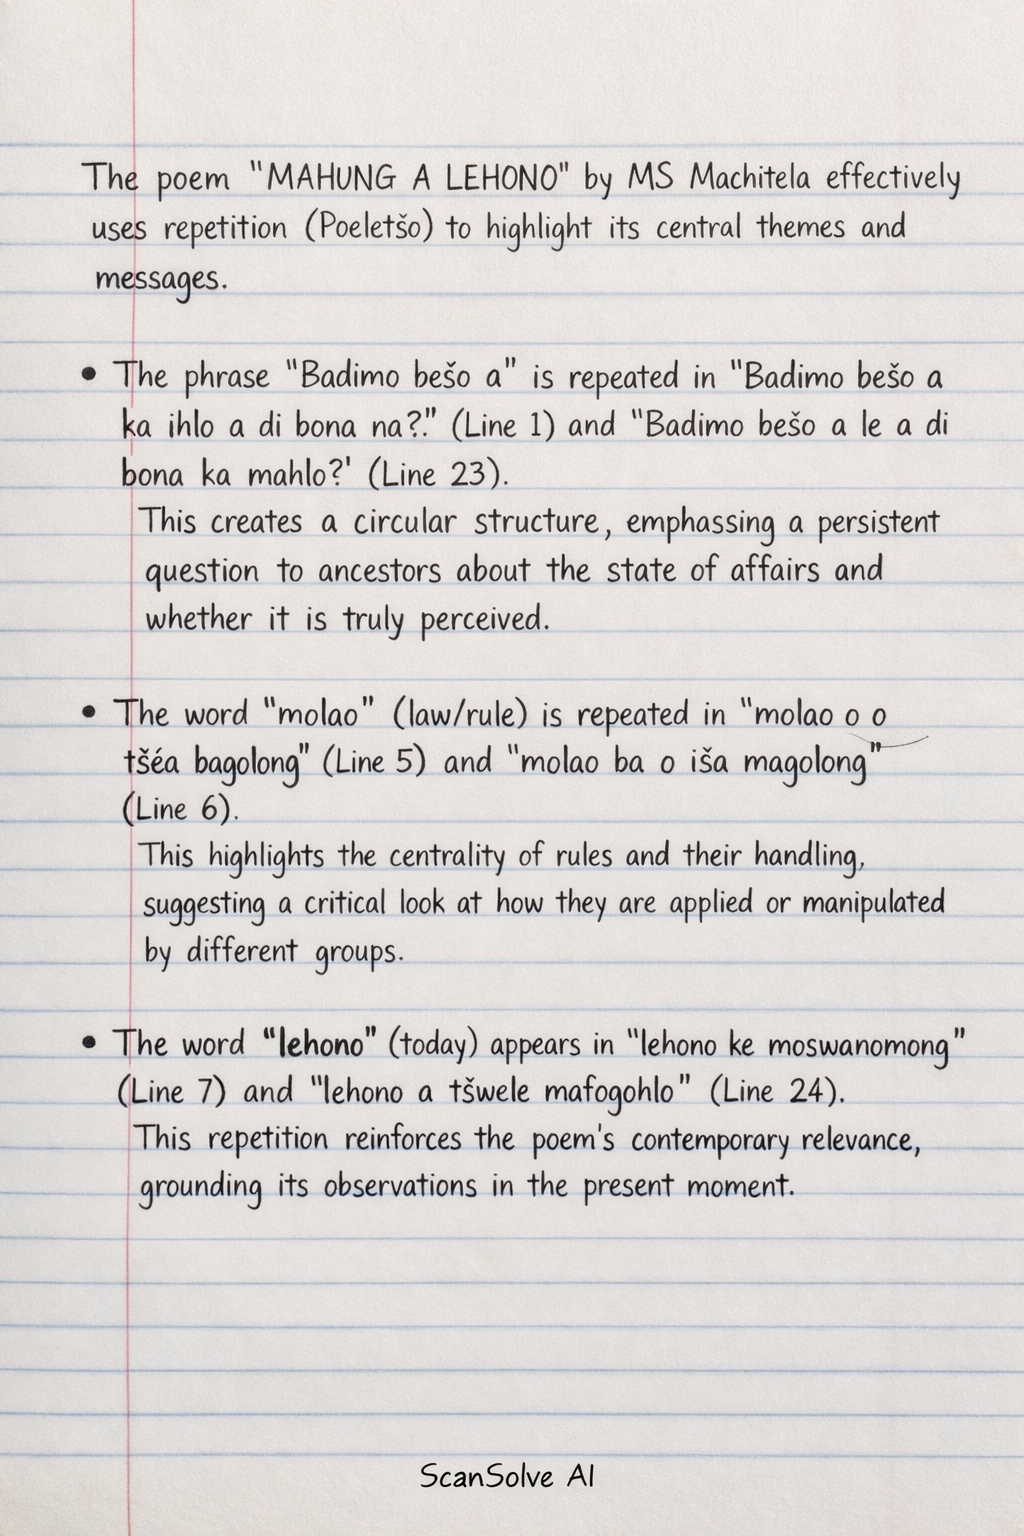 The poem "MAHUNG A LEHONO" by MS Machitela effectively
uses repetition (Poeletšo) to highlight its central themes and
messages.
• The phrase "Badimo bešo a" is repeated in "Badimo bešo a
ka ihlo a di bona na?." (Line 1) and "Badimo bešo a le a di
bona ka mahlo?' (Line 23).
This creates a circular structure, emphassing a persistent
question to ancestors about the state of affairs and
whether it is truly perceived.
• The word "molao" (law/rule) is repeated in "molao o o
tšéa bagolong" (Line 5) and "molao ba o iša magolong"
(Line 6).
This highlights the centrality of rules and their handling,
suggesting a critical look at how they are applied or manipulated
by different groups.
• The word "lehono" (today) appears in "lehono ke moswanomong"
(Line 7) and "lehono a tšwele mafogohlo" (Line 24).
This repetition reinforces the poem's contemporary relevance,
grounding its observations in the present moment.
ScanSolve AI